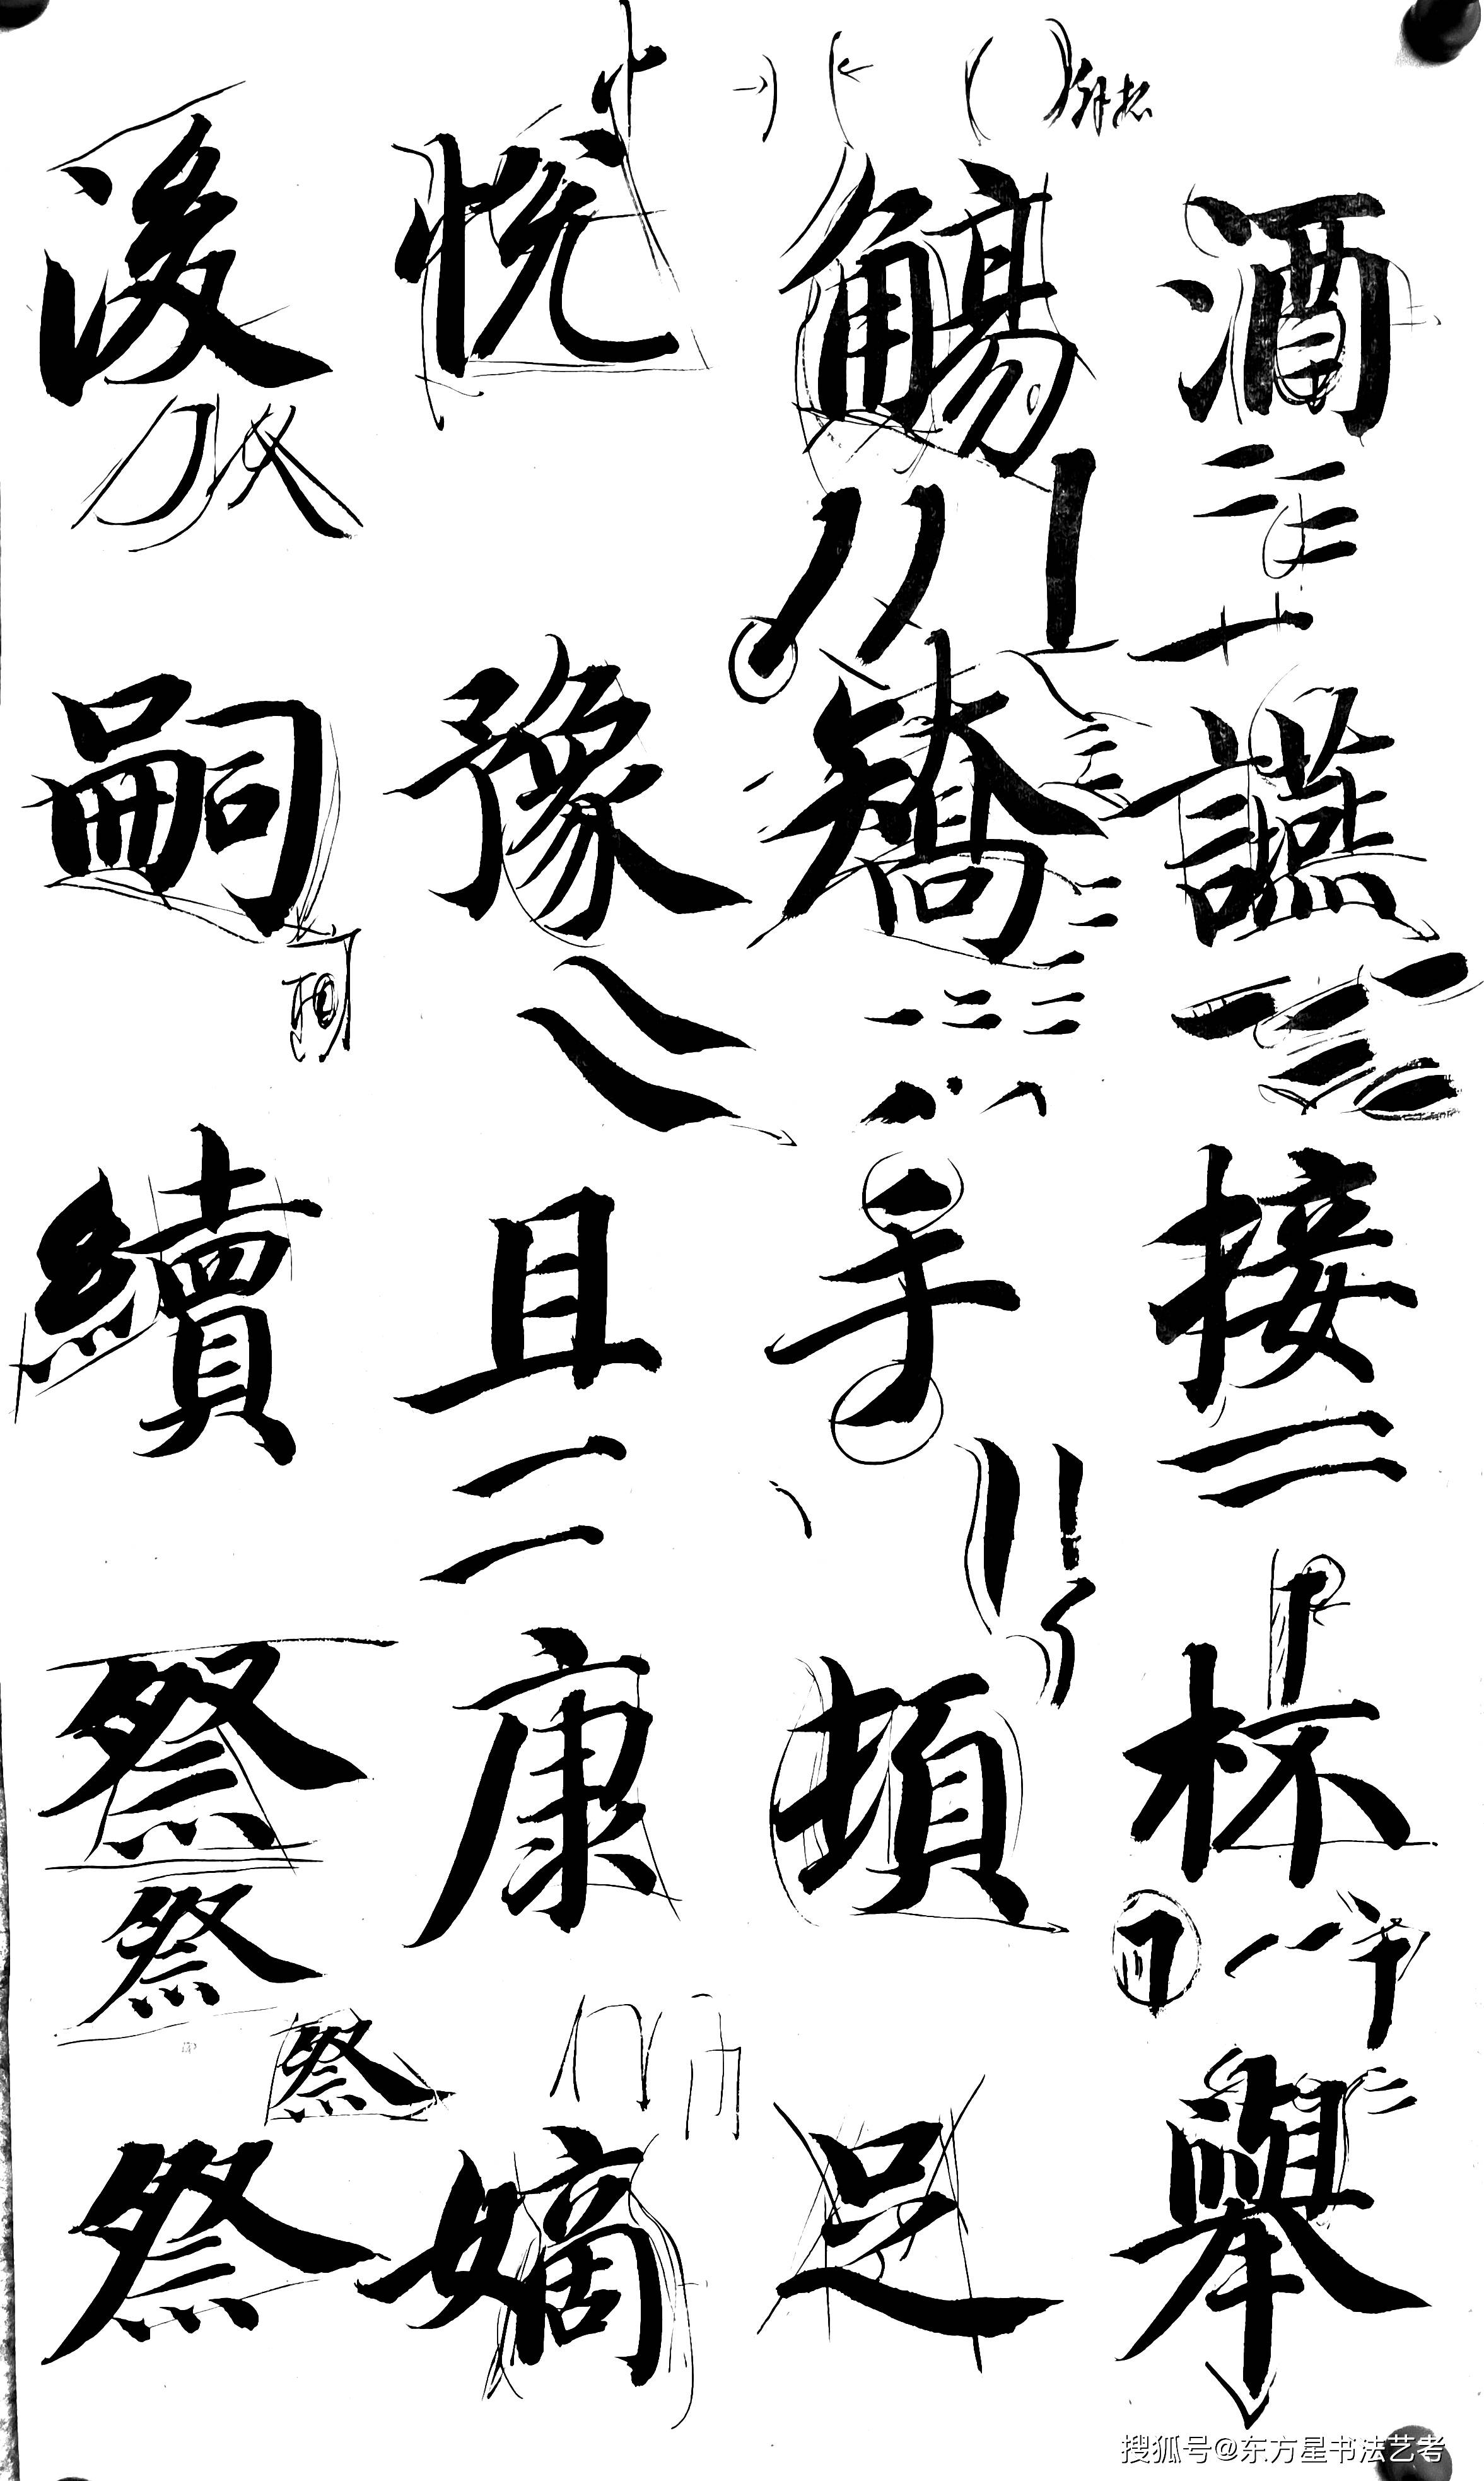 酒讌接杯舉
觴矯手頓足
悅豫且康嫡
後嗣續祭祭祭祭
搜狐号@东方星书法艺考